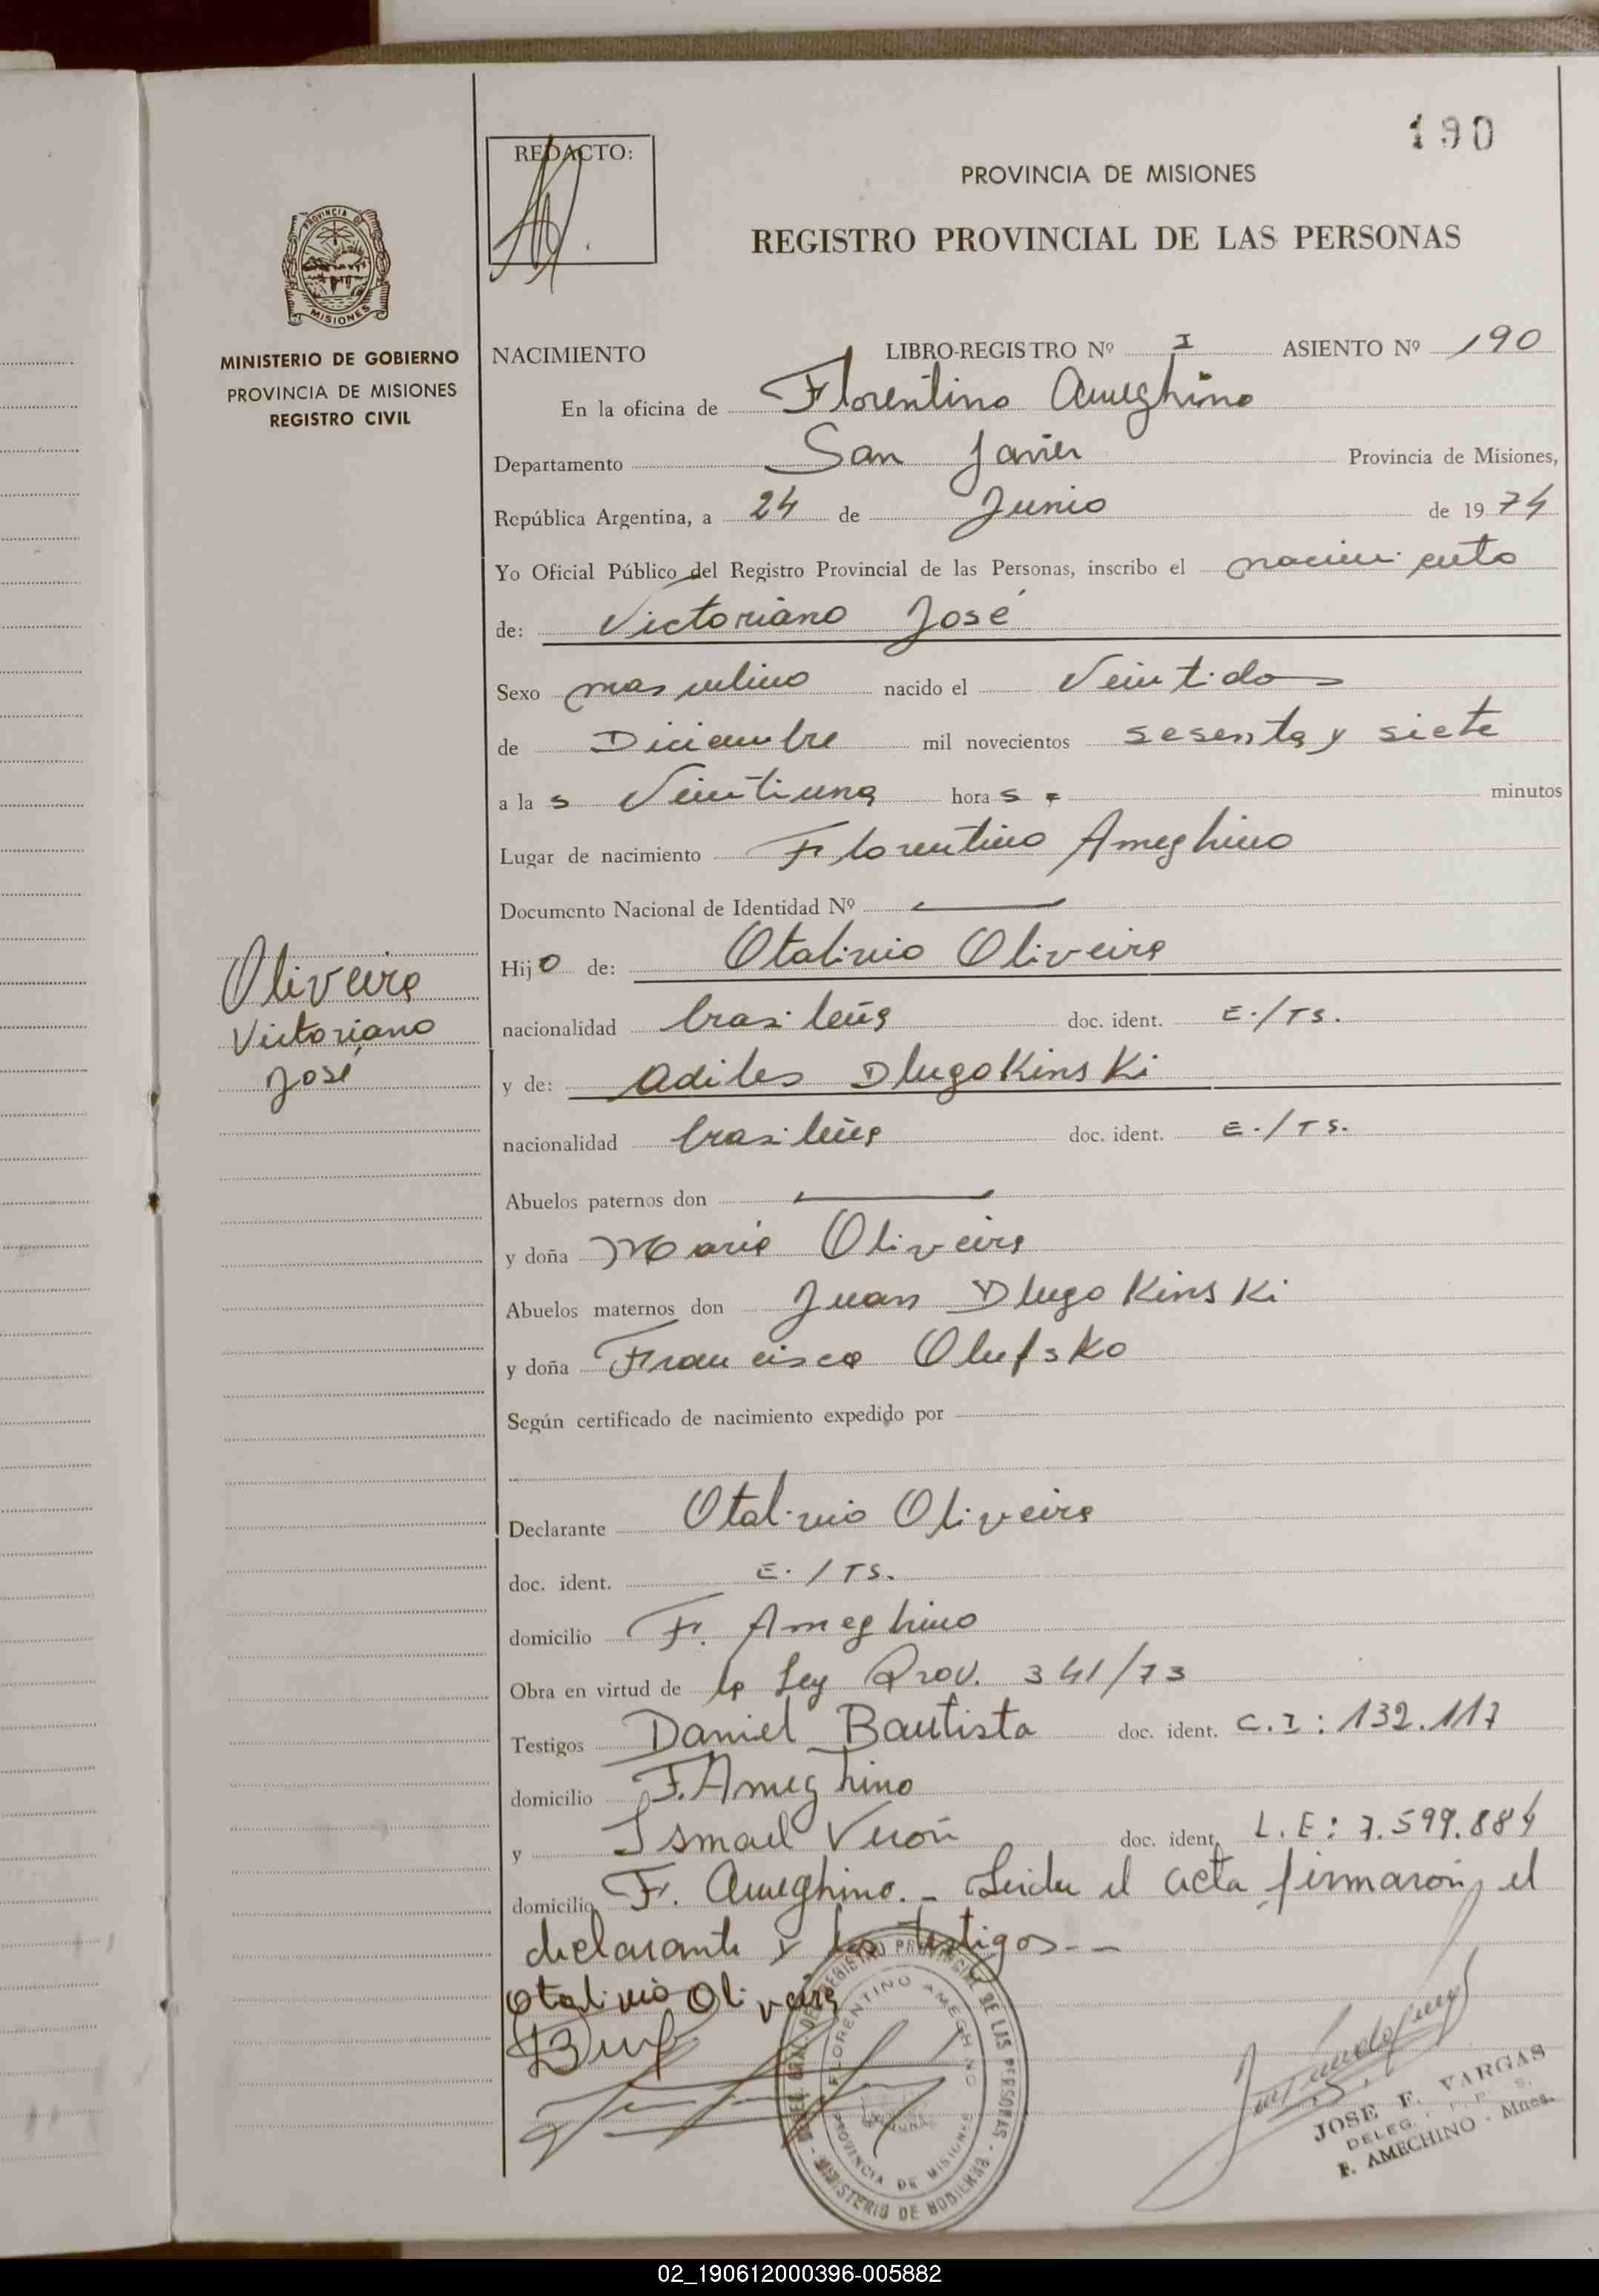 190
REDACTO:
PROVINCIA DE MISIONES
REGISTRO PROVINCIAL DE LAS PERSONAS
PROVINCIA DE
MISIONES
MINISTERIO DE GOBIERNO
PROVINCIA DE MISIONES
REGISTRO CIVIL
NACIMIENTO LIBRO-REGISTRO Nº I ASIENTO Nº 190
En la oficina de Florentino Ameghino
Departamento San Javier Provincia de Misiones,
República Argentina, a 24 de Junio de 1974
Yo Oficial Público del Registro Provincial de las Personas, inscribo el nacimiento
de: Victoriano José
Sexo masculino nacido el Veintidos
de Diciembre mil novecientos sesenta y siete
a las Veintiuna horas = minutos
Lugar de nacimiento Florentino Ameghino
Documento Nacional de Identidad Nº
Hijo de: Otalivio Oliveira
nacionalidad brasileña doc. ident. E./TS.
y de: Adiles Dlugokinski
nacionalidad brasileña doc. ident. E./TS.
Abuelos paternos don
y doña Maria Oliveira
Abuelos maternos don Juan Dlugokinski
y doña Francisca Olufsko
Según certificado de nacimiento expedido por
Declarante Otalivio Oliveira
doc. ident. E./TS.
domicilio F. Ameghino
Obra en virtud de la Ley Prov. 341/73
Testigos Daniel Bautista doc. ident. C.I: 132.117
domicilio F. Ameghino
y Ismael Verón doc. ident. L.E: 7.599.884
domicilio F. Ameghino. - Leida el acta firmaron, el
declarante y los testigos. --
Otalivio Oliveira
Oliveira
Victoriano
José
REGISTRO PROVINCIAL DE LAS PERSONAS
FLORENTINO AMEGHINO
PROVINCIA DE MISIONES
MINISTERIO DE
JOSE F. VARGAS
DELEG.
F. AMEGHINO - Mnes.
02_190612000396-005882